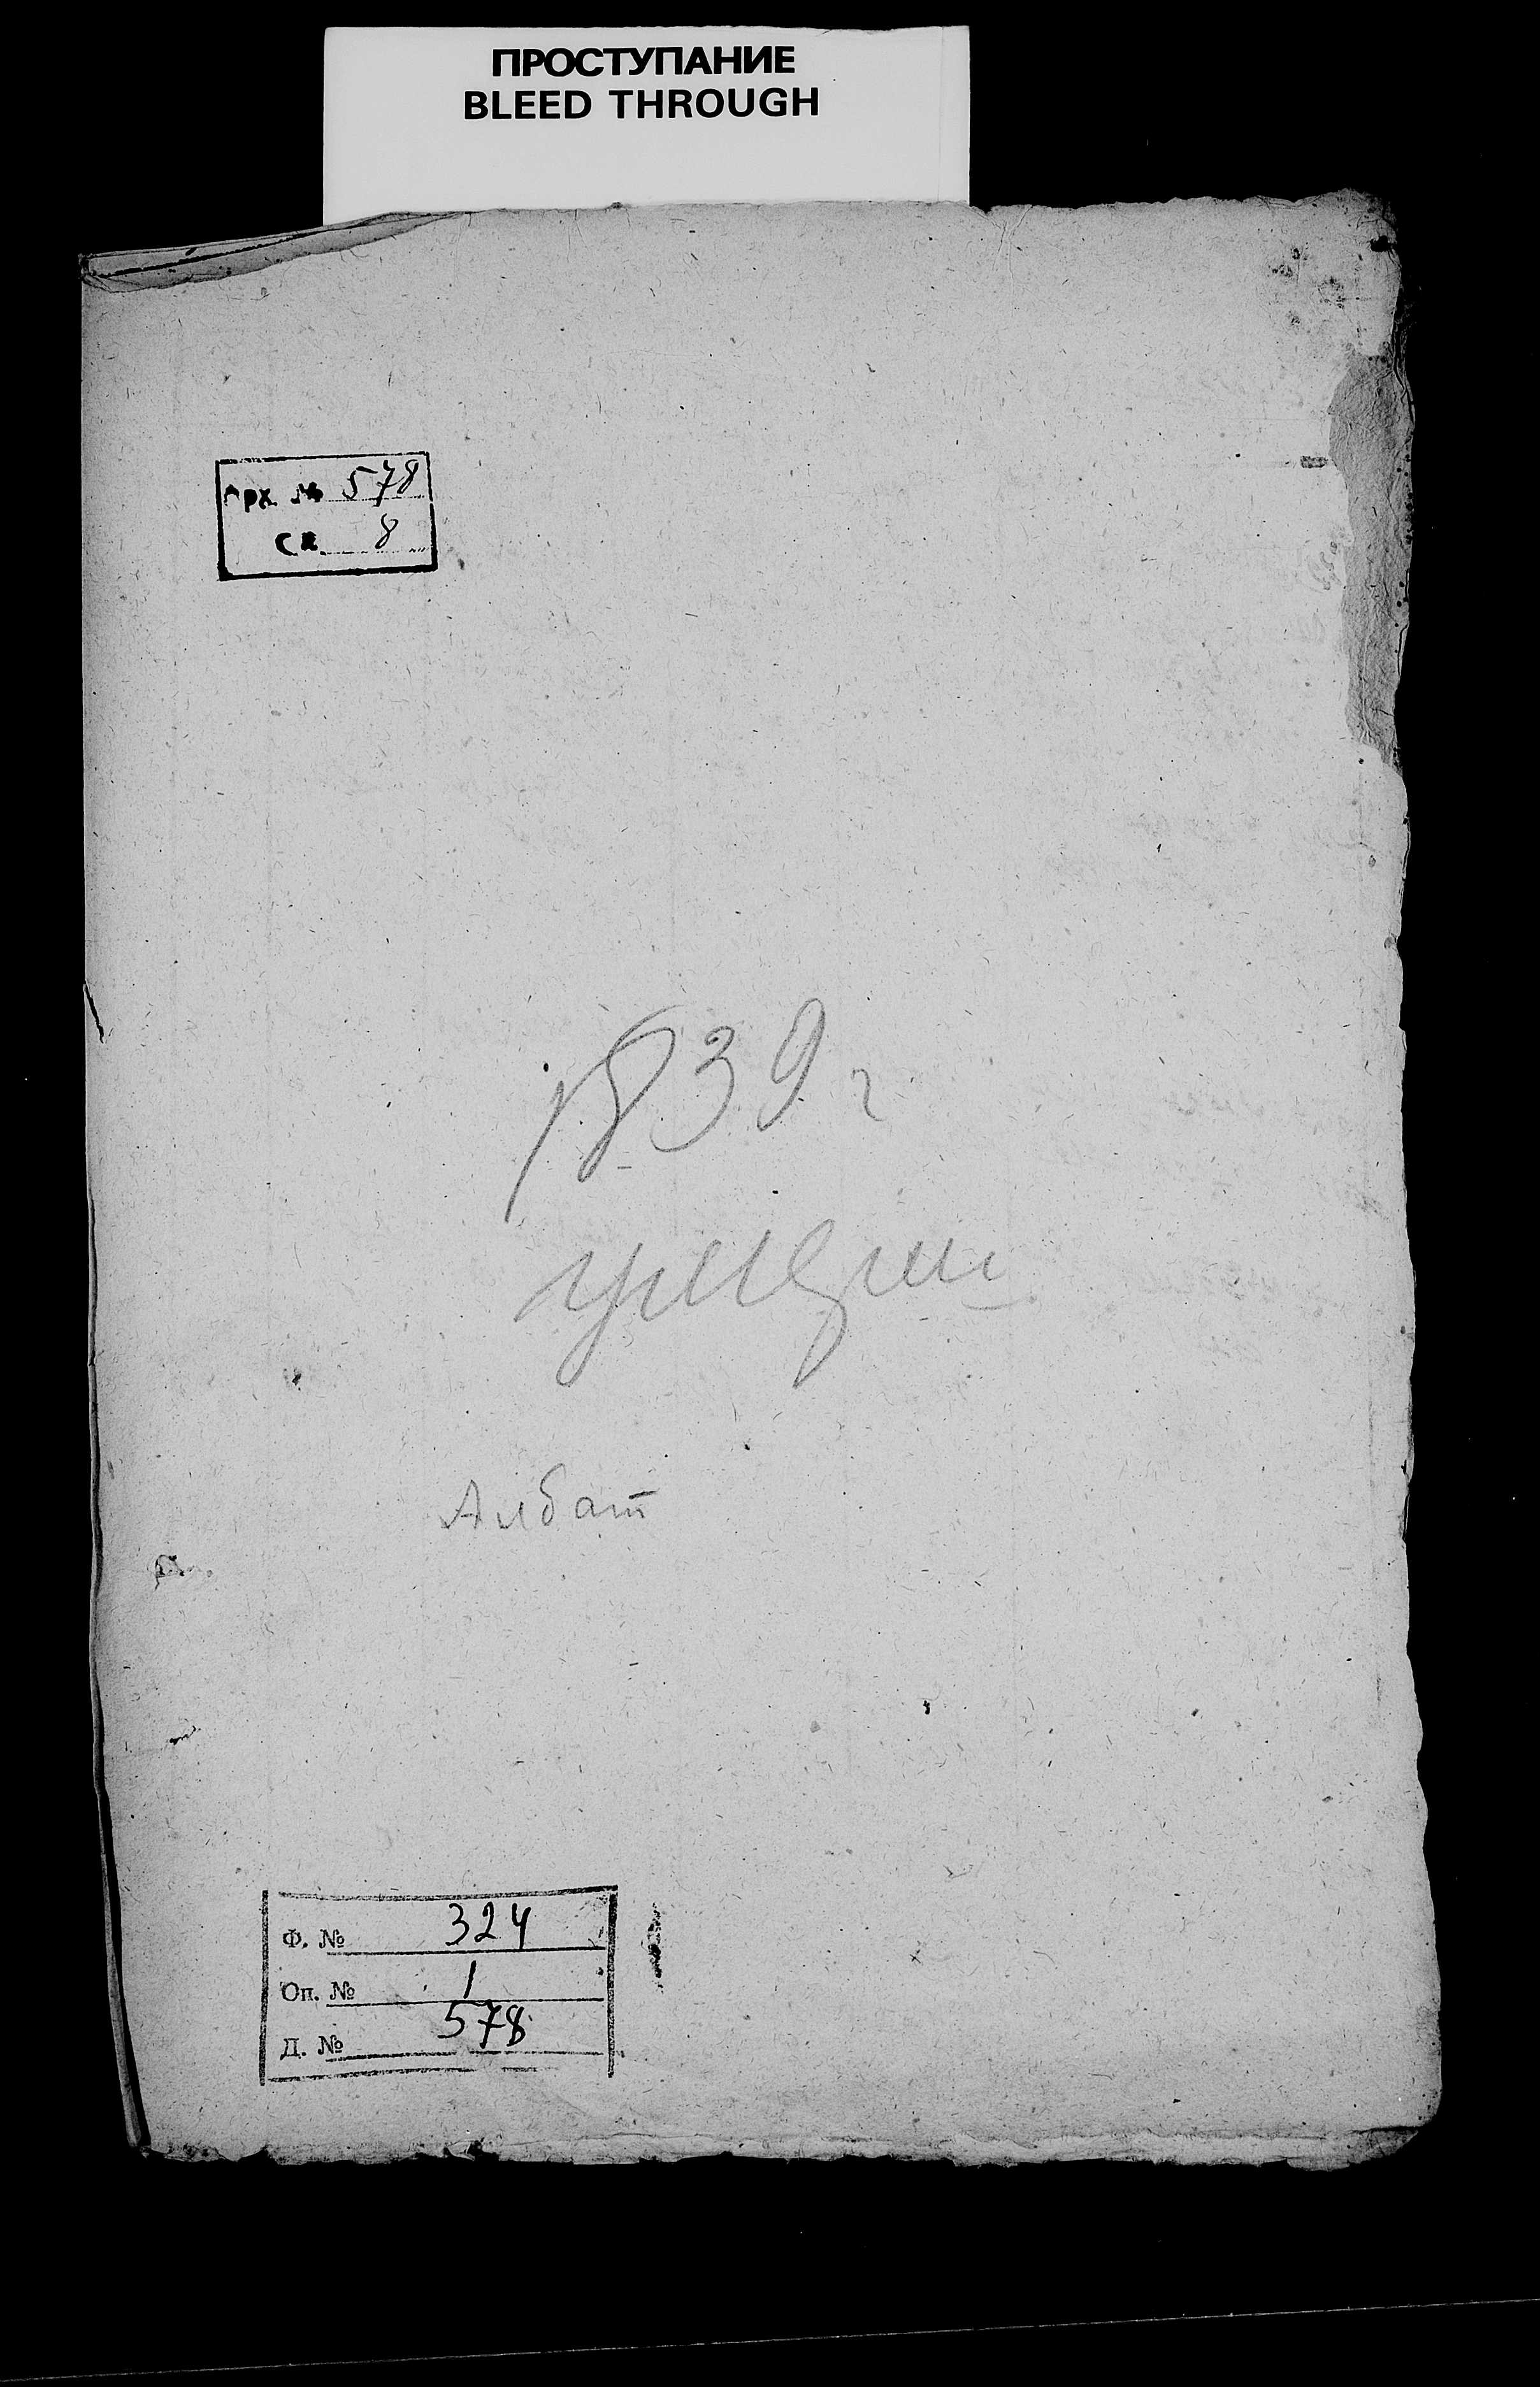 ПРОСТУПАНИЕ
BLEED THROUGH
Арх. № 578
св. 8
1839 г
Албат
Ф. № 324
Оп. № 1
Д. № 578